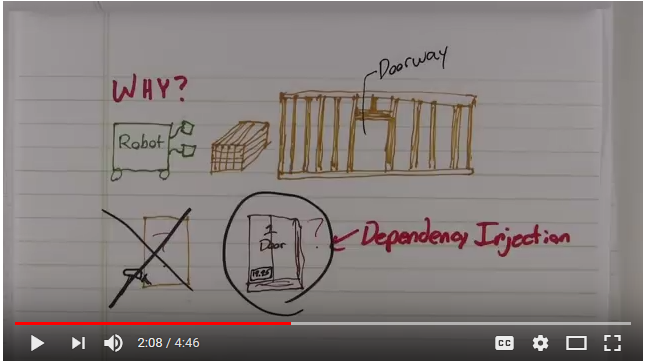 Doorway
WHY?
Robot
?
1
Door
?
Dependency Injection
2:08 / 4:46
CC